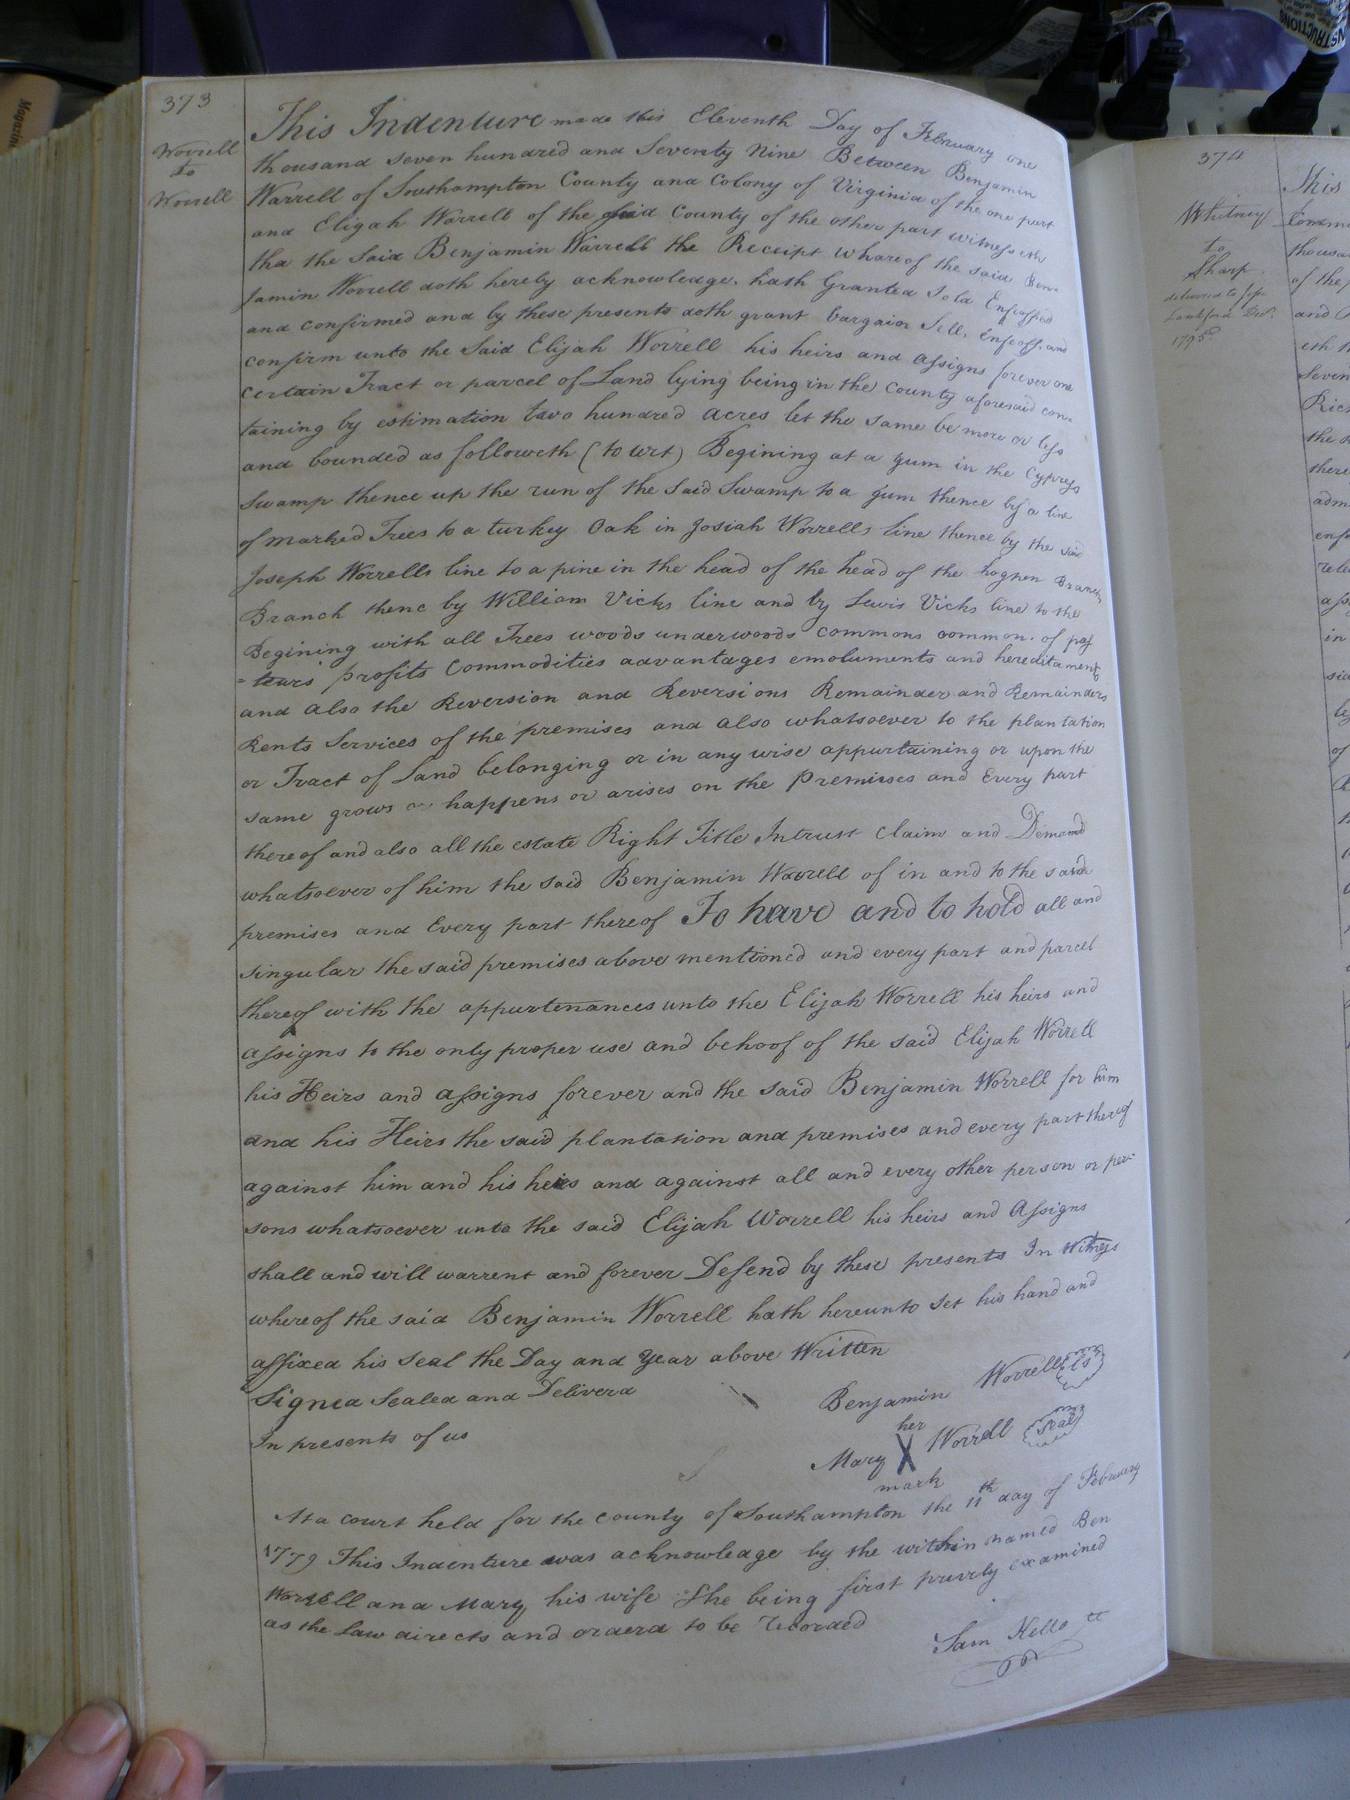 373
Worrell
to
Worrell
This Indenture made this Eleventh Day of February one
thousand seven hundred and Seventy Nine Between Benjamin
Warrell of Southampton County and Colony of Virginia of the one part
and Elijah Worrell of the said County of the other part witnesseth
tha the Said Benjamin Warrell the Receipt whareof the said Ben-
jamin Worrell doth hereby acknowledge, hath Granted Sold Enfeoffed
and confirmed and by these presents doth grant bargain Sell, Enfeoff, and
confirm unto the Said Elijah Worrell his heirs and assigns forever one
certain Tract or parcel of Land lying being in the County aforesaid con-
taining by estimation two hundred acres let the same be more or less
and bounded as followeth (to wit) Begining at a gum in the Cypress
Swamp thence up the run of the Said Swamp to a gum thence by a line
of marked Trees to a turkey Oak in Josiah Worrells line thence by the said
Joseph Worrells line to a pine in the head of the head of the hogpen Branch
Branch thenc by William Vicks line and by Lewis Vicks line to the
Begining with all Trees woods underwoods commons common. of pas
=tears profits Commodities advantages emoluments and hereditaments
and also the Reversion and Reversions Remainder and Remainders
Rents Services of the premises and also whatsoever to the plantation
or Tract of Land belonging or in any wise appurtaining or upon the
same grows or happens or arises on the Premises and Every part
thereof and also all the estate Right Title Intrust Claim and Demand
whatsoever of him the said Benjamin Worrell of in and to the said
premises and Every part thereof To have and to hold all and
singular the said premises above mentioned and every part and parcel
thereof with the appurtenances unto the Elijah Worrell his heirs and
assigns to the only proper use and behoof of the said Elijah Worrell
his Heirs and assigns forever and the said Benjamin Worrell for him
and his Heirs the said plantation and premises and every part thereof
against him and his heirs and against all and every other person or per-
sons whatsoever unto the said Elijah Worrell his heirs and Assigns
shall and will warrent and forever Defend by these presents In Witness
whereof the said Benjamin Worrell hath hereunto set his hand and
affixed his seal the Day and Year above Written
Signed Sealed and Deliverd
In presents of us
Benjamin Worrell Ls
her
Mary X Worrell Seal
mark
At a court held for the county of Southampton the 11th day of February
1779 This Indenture was acknowledge by the within named Ben
Worrell and Mary his wife She being first privily examined
as the Law directs and orderd to be recorded
Sam Kello CC
374
Whitney
to
Sharp
1795
This
thousa
of the
and
seven